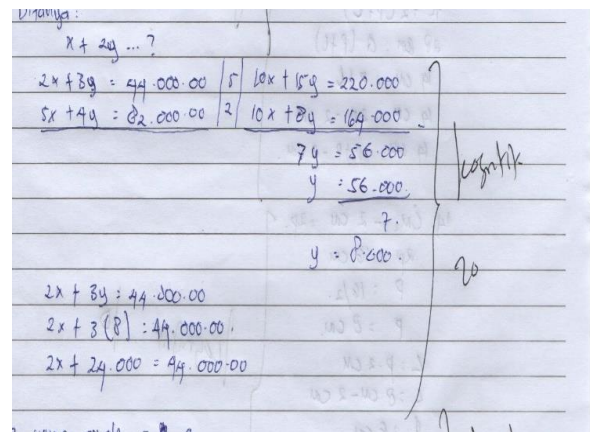 Ditanya:
x + 2y ...?
2x + 3y = 44.000.00 | 5 | 10x + 15y = 220.000
5x + 4y = 82.000.00 | 2 | 10x + 8y = 164.000 -
7y = 56.000
y = 56.000
7.
y = 8.000.
kognitif
20
2x + 3y = 44.000.00
2x + 3(8) = 44.000.00.
2x + 24.000 = 44.000.00